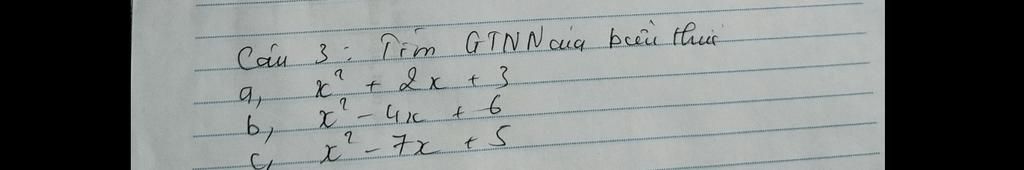 Câu 3: Tìm GTNN của biểu thức
a, x² + 2x + 3
b, x² - 4x + 6
c, x² - 7x + 5